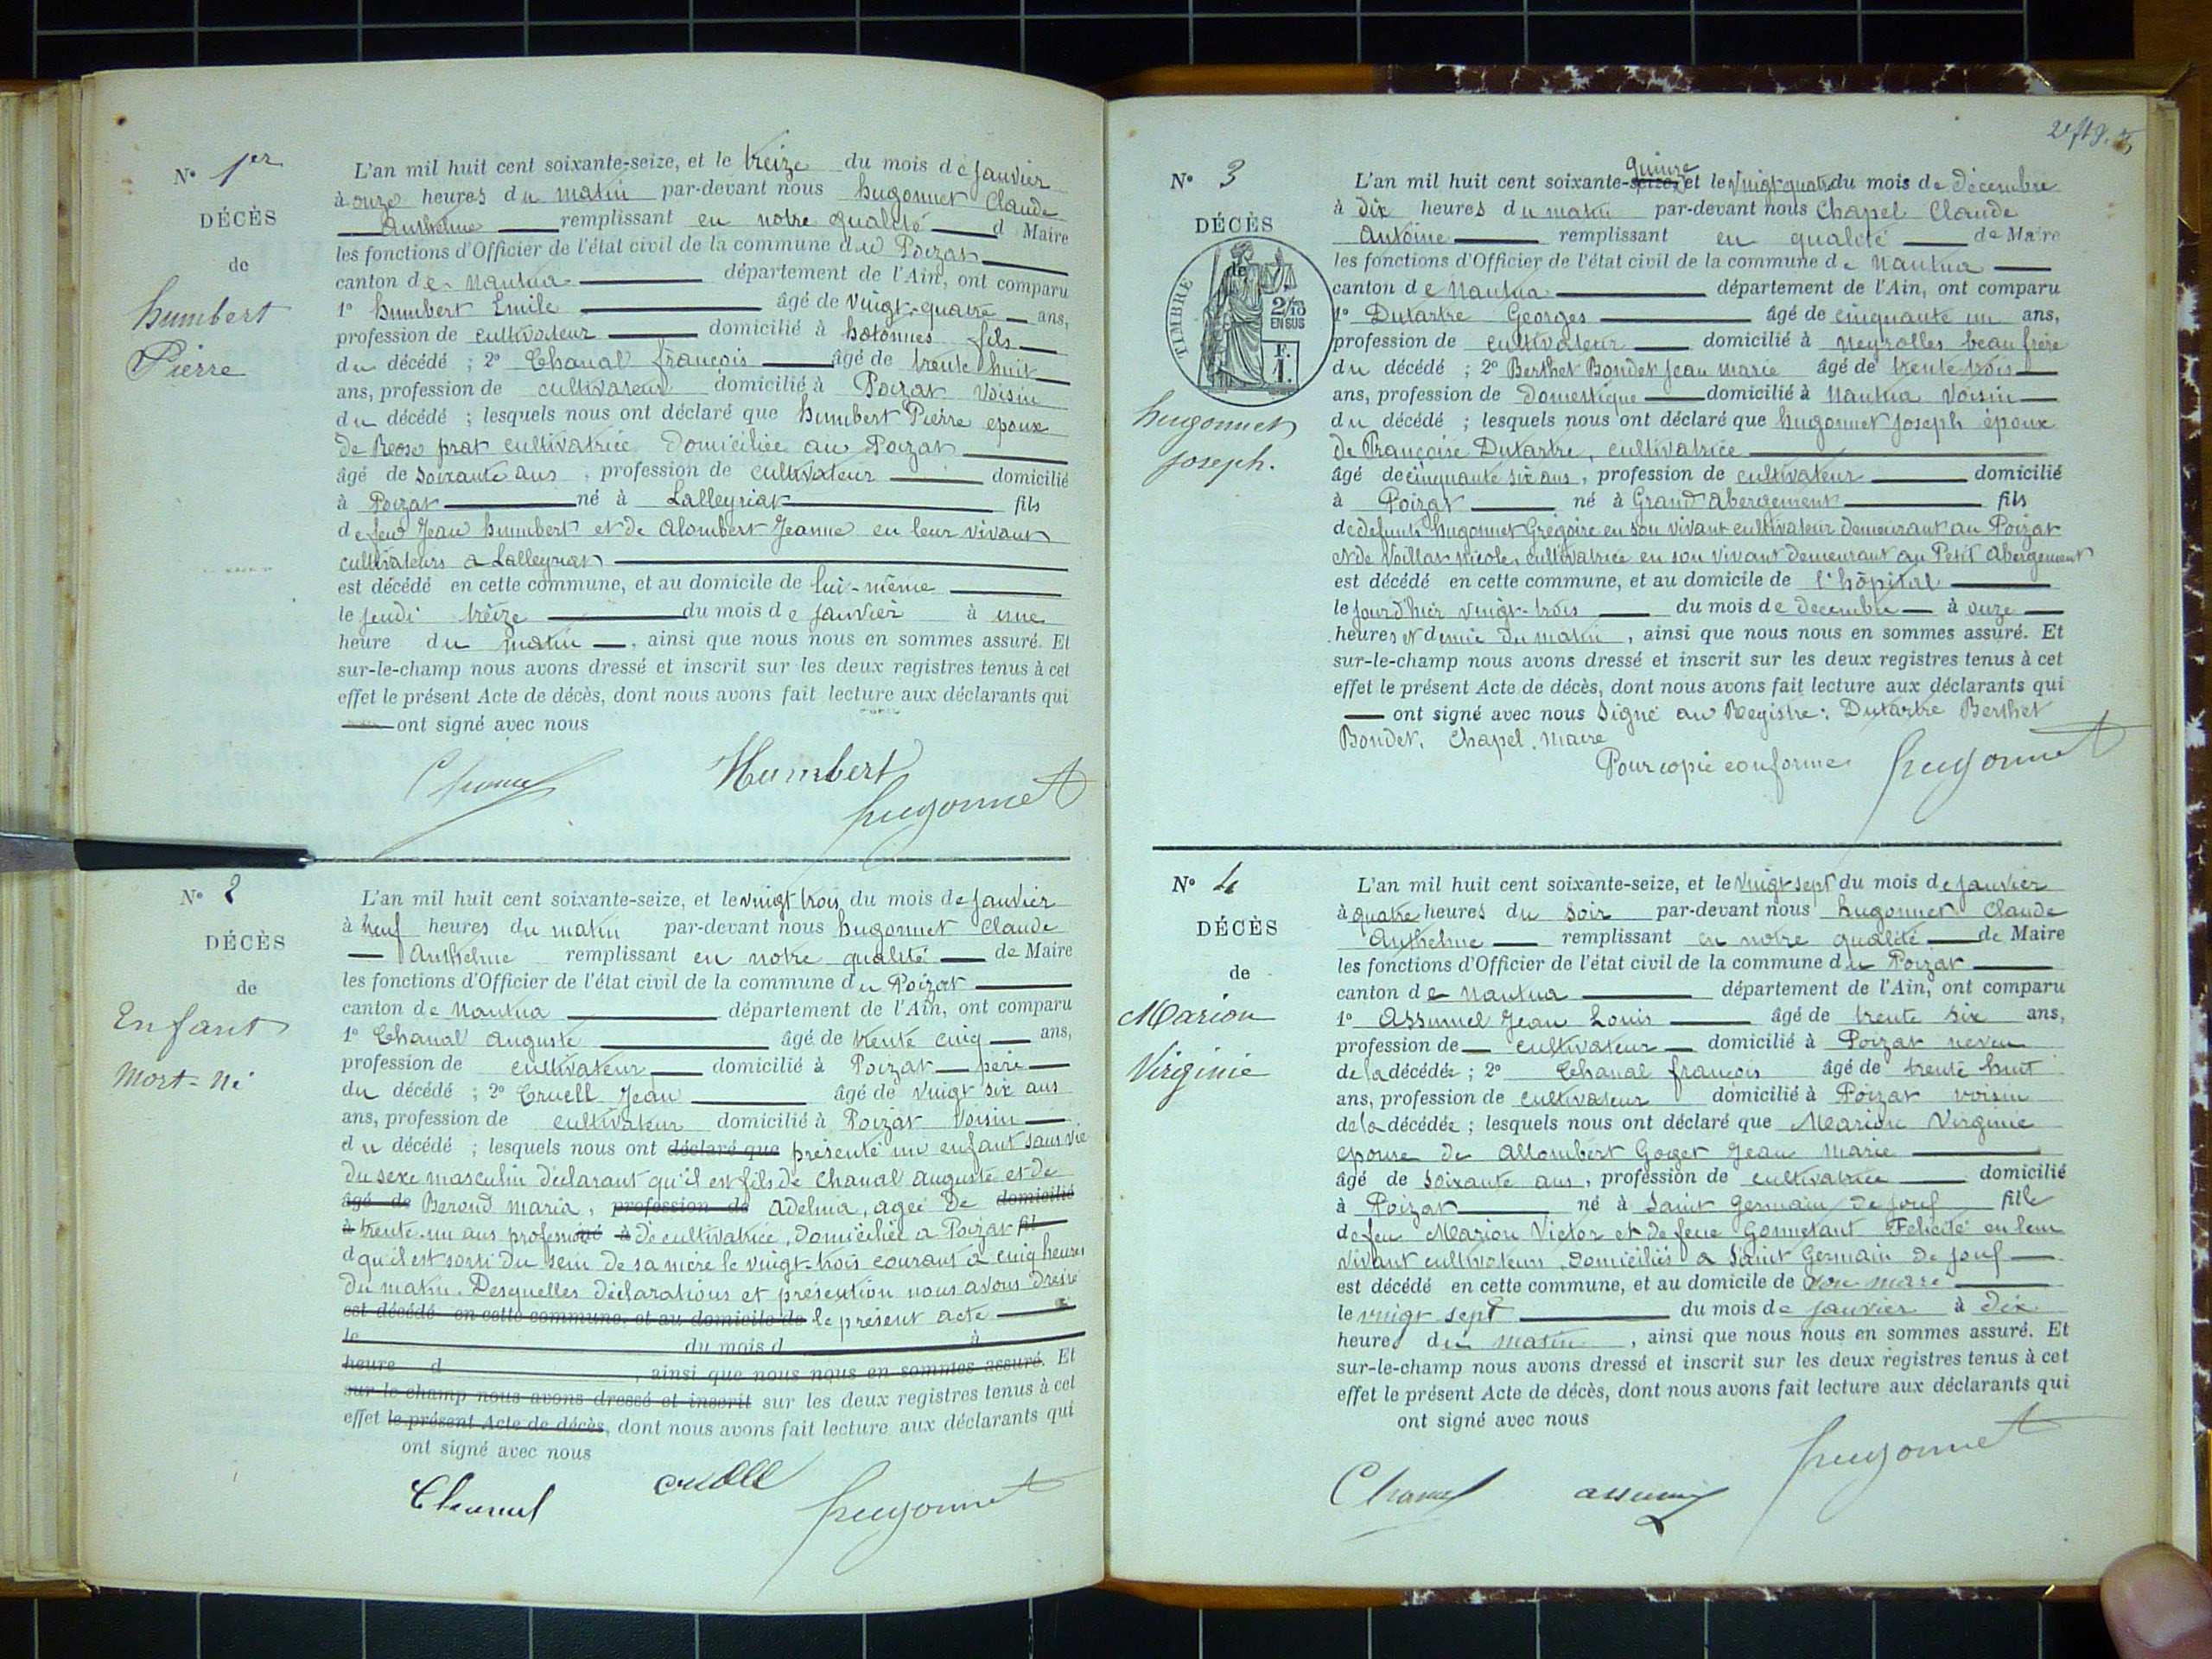 N° 1er
DÉCÈS
de
humbert
Pierre
L'an mil huit cent soixante-seize, et le treize du mois de janvier
à onze heures du matin par-devant nous hugonnet Claude
Anthelme remplissant en notre qualité d Maire
les fonctions d'Officier de l'état civil de la commune du Poizat
canton de Nantua département de l'Ain, ont comparu
1° humbert Emile âgé de vingt-quatre ans,
profession de cultivateur domicilié à hotonnes fils
du décédé ; 2° Chanal françois âgé de trente huit
ans, profession de cultivateur domicilié à Poizat Voisin
du décédé ; lesquels nous ont déclaré que humbert Pierre epoux
de Reose prat cultivatrice domiciliée au Poizat
âgé de soixante ans, profession de cultivateur domicilié
à Poizat né à Lalleyriat fils
de feu Jean humbert et de Alombert Jeanne en leur vivant
cultivateurs a Lalleyriat
est décédé en cette commune, et au domicile de lui-même
le jeudi treize du mois de janvier à une
heure du matin, ainsi que nous nous en sommes assuré. Et
sur-le-champ nous avons dressé et inscrit sur les deux registres tenus à cet
effet le présent Acte de décès, dont nous avons fait lecture aux déclarants qui
ont signé avec nous
Humbert
hugonnet
N° 2
DÉCÈS
de
Enfant
Mort-né
L'an mil huit cent soixante-seize, et le vingt trois du mois de janvier
à neuf heures du matin par-devant nous hugonnet Claude
Anthelme remplissant en notre qualité de Maire
les fonctions d'Officier de l'état civil de la commune du Poizat
canton de Nantua département de l'Ain, ont comparu
1° Chanal Auguste âgé de trente cinq ans,
profession de cultivateur domicilié à Poizat père
du décédé ; 2° Cruell Jean âgé de vingt six ans
ans, profession de cultivateur domicilié à Poizat Voisin
du décédé ; lesquels nous ont déclaré que présenté un enfant sans vie
du sexe masculin déclarant qu'il est fils de Chanal auguste et de
âgé de Beroud maria, profession de Adelina, agée de domicilié
à trente-un ans profession né à de cultivatrice, domiciliée a Poizat fil
d qu'il est sorti du sein de sa mère le vingt-trois courant à cinq heures
du matin. Desquelles déclarations et présention nous avons dressé
est décédé en cette commune, et au domicile de le présent acte
le du mois d à
heure d , ainsi que nous nous en sommes assuré. Et
sur-le-champ nous avons dressé et inscrit sur les deux registres tenus à cet
effet le présent Acte de décès, dont nous avons fait lecture aux déclarants qui
ont signé avec nous
Chanal cruell hugonnet
N° 3
DÉCÈS
de
TIMBRE
2/10
EN SUS
F.
1.
hugonnet
joseph.
quinze
L'an mil huit cent soixante-seize, et le vingt quatre du mois de décembre
à dix heures du matin par-devant nous Chapel Claude
Antoine remplissant en qualité de Maire
les fonctions d'Officier de l'état civil de la commune de Nantua
canton de Nantua département de l'Ain, ont comparu
1° Dutartre Georges âgé de cinquante un ans,
profession de cultivateur domicilié à Neyrolles beau frère
du décédé ; 2° Berthet Bondet Jean marie âgé de trente trois
ans, profession de Domestique domicilié à Nantua Voisin
du décédé ; lesquels nous ont déclaré que hugonnet Joseph époux
de Françoise Dutartre, cultivatrice
âgé de cinquante six ans, profession de cultivateur domicilié
à Poizat né à Grand Abergement fils
de defunts hugonnet Grégoire en son vivant cultivateur demeurant au Poizat
et de Vaillat nicole, cultivatrice en son vivant demeurant au Petit Abergement
est décédé en cette commune, et au domicile de l'hôpital
le jourd'hier vingt-trois du mois de decembre à onze
heures et demie du matin, ainsi que nous nous en sommes assuré. Et
sur-le-champ nous avons dressé et inscrit sur les deux registres tenus à cet
effet le présent Acte de décès, dont nous avons fait lecture aux déclarants qui
ont signé avec nous Signé au Registre : Dutartre Berthet
Bondet, Chapel, maire
Pour copie conforme hugonnet
N° 4
DÉCÈS
de
Marion
Virginie
L'an mil huit cent soixante-seize, et le vingt sept du mois de janvier
à quatre heures du soir par-devant nous hugonnet Claude
Anthelme remplissant en notre qualité de Maire
les fonctions d'Officier de l'état civil de la commune du Poizat
canton de Nantua département de l'Ain, ont comparu
1° Assumel Jean Louis âgé de trente six ans,
profession de cultivateur domicilié à Poizat neveu
de la décédée ; 2° Chanal françois âgé de trente huit
ans, profession de cultivateur domicilié à Poizat voisin
de la décédée ; lesquels nous ont déclaré que Marion Virginie
epouse de Allombert Goget Jean Marie
âgé de soixante ans, profession de cultivatrice domicilié
à Poizat né à Saint Germain de Joux fille
de feu Marion Victor et de feue Gonnetant Felicité en leur
vivant cultivateurs, domiciliés a Saint Germain de Joux
est décédé en cette commune, et au domicile de son mari
le vingt sept du mois de janvier à dix
heures du matin, ainsi que nous nous en sommes assuré. Et
sur-le-champ nous avons dressé et inscrit sur les deux registres tenus à cet
effet le présent Acte de décès, dont nous avons fait lecture aux déclarants qui
ont signé avec nous
hugonnet